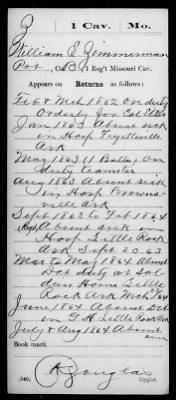 Z 1 Cav. Mo.
William E Zimmerman
Pvt, Co. B, 1 Reg't Missouri Cav.
Appears on Returns as follows:
Feb & Mch 1862 on duty
Orderly for Col Ellis
Jan 1863 Absent sick
in Hosp Fayetteville
Ark
May 1863 (1 Battn) Own
duty teamster
Aug 1863 Absent sick
in Hosp Browns-
ville Ark
Sept 1863 to Feb 1864
Absent sick in
Hosp Little Rock
Ark Sept 20.63
Mar & May 1864 Absent
Det duty at Sol-
diers Home Little
Rock Ark Mch /64
June 1864 Absent Det
in G H Little Rock Ark
July & Aug 1864 Absent
Book mark
K Douglas
(546) Copyist.